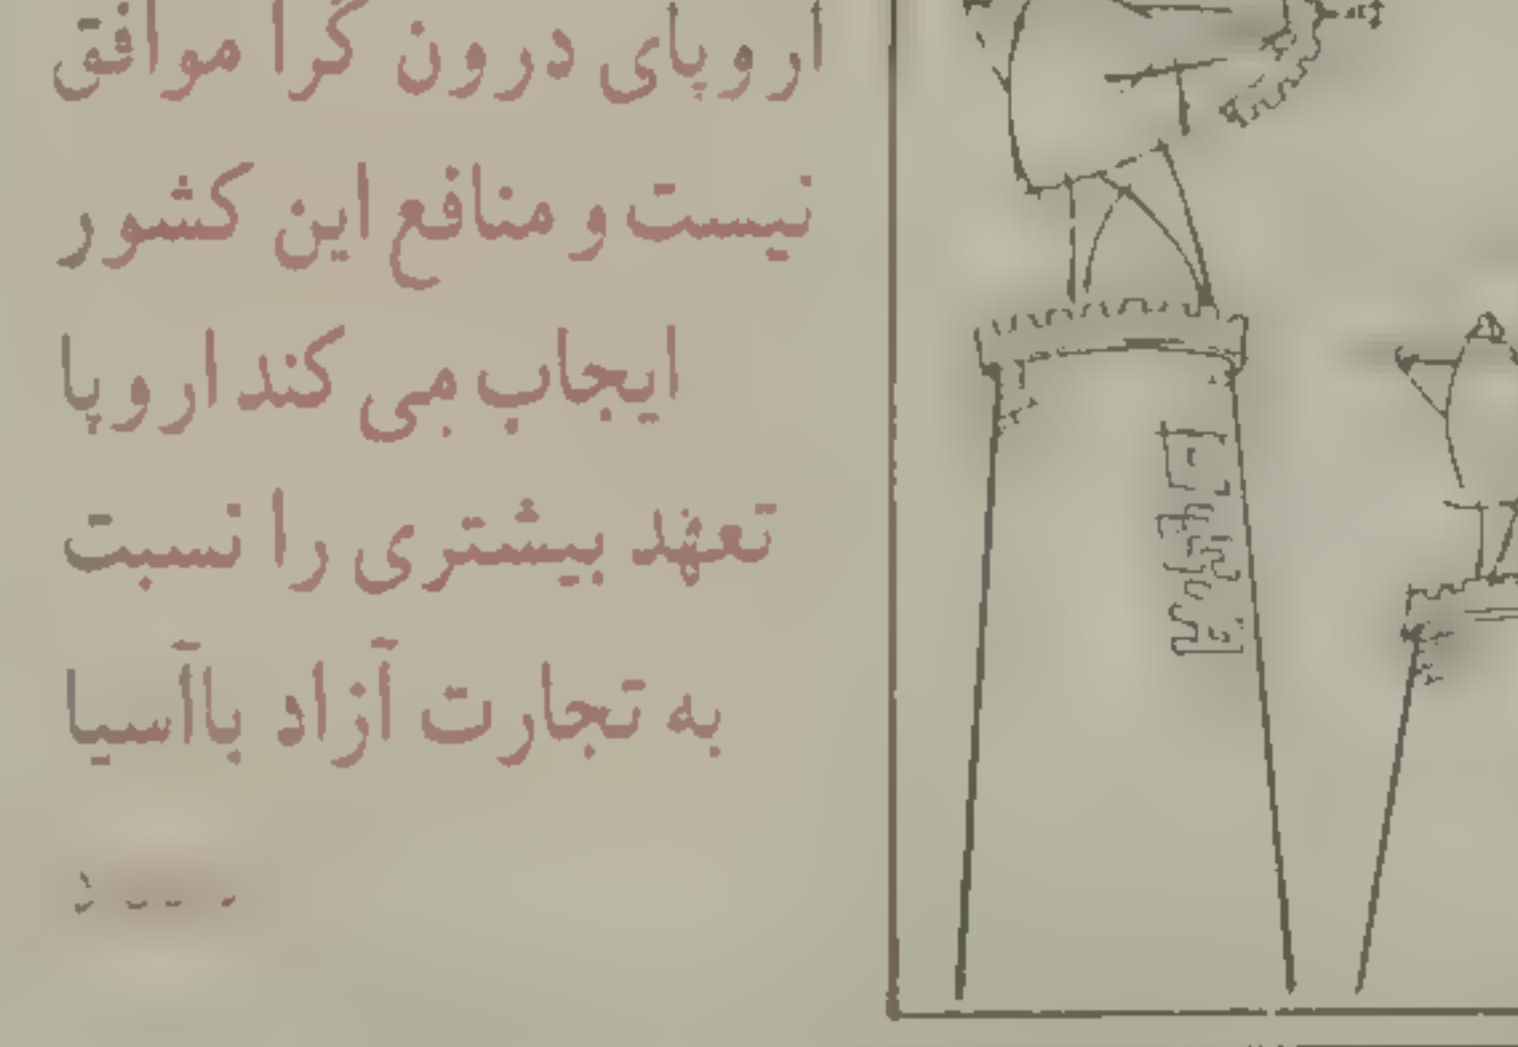 اروپای درون گرا موافق
نیست و منافع این کشور
ایجاب می کند اروپا
تعهد بیشتری را نسبت
به تجارت آزاد باآسیا